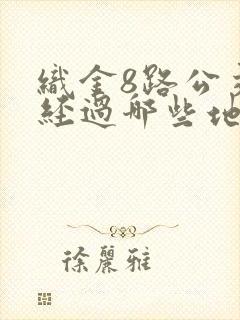 織金8路公交
經過哪些地
徐麗雅